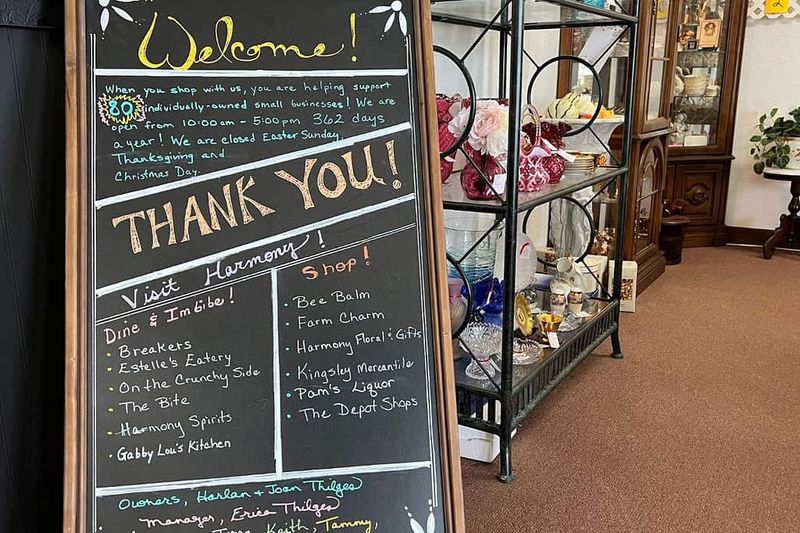 Welcome!
When you shop with us, you are helping support
80 individually-owned small businesses! We are
open from 10:00am - 5:00pm 362 days
a year! We are closed Easter Sunday,
Thanksgiving and
Christmas Day.
THANK YOU!
Visit Harmony!
Dine & Imbibe!
• Breakers
• Estelle's Eatery
• On the Crunchy Side
• The Bite
• Harmony Spirits
• Gabby Lou's Kitchen
Shop!
• Bee Balm
• Farm Charm
• Harmony Floral & Gifts
• Kingsley Mercantile
• Pam's Liquor
• The Depot Shops
Owners, Harlan & Joan Thilges
Manager, Erica Thilges
Keith, Tammy,
2